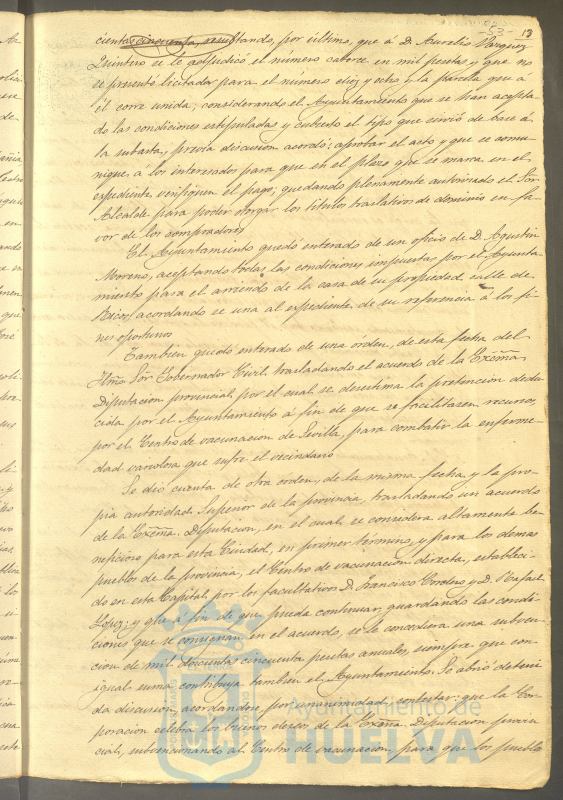 -53- 13
cientas cincuenta, resultando, por último, que á D. Aurelio Vazquez
Quintero se le adjudicó el número catorce en mil pesetas y que no
se presentó licitador para el número diez y ocho y la parcela que á
él corre unida; considerando el Ayuntamiento que se han acepta-
do las condiciones estipuladas y cubierto el tipo que sirvió de base á
la subasta, previa discusion acordó: aprobar el acto y que se comu-
nique á los interesados para que en el plazo que se marca en el
expediente verifiquen el pago; quedando plenamente autorizado el Sor
Alcalde para poder otorgar los títulos traslativos de dominio en fa-
vor de los compradores
El Ayuntamiento quedó enterado de un oficio de D. Agustin
Moreno, aceptando todas las condiciones impuestas por el Ayunta
miento para el arriendo de la casa de su propiedad calle de
Ricos, acordando se una al expediente de su referencia á los fi-
nes oportunos
Tambien quedó enterado de una órden, de esta fecha del
Iltmo Sor Gobernador Civil trasladando el acuerdo de la Excma
Diputacion provincial por el cual se desestima la pretencion dedu
cida por el Ayuntamiento á fin de que se facilitasen recursos
por el Centro de vacunacion de Sevilla, para combatir la enferme-
dad variolosa que sufre el vecindario
Se dió cuenta de otra órden, de la misma fecha y la pro-
pia autoridad Superior de la provincia, trasladando un acuerdo
de la Excma. Diputacion, en el cual se considera altamente be-
neficioso para esta Ciudad, en primer término, y para los demas
pueblos de la provincia, el Centro de vacunacion directa, estableci-
do en esta Capital, por los facultativos D. Francisco y D. Rafael
Lopez; y que á fin de que pueda continuar, guardando las condi-
ciones que se consignan en el acuerdo, se le concediera una subven-
cion de mil doscientas cincuenta pesetas anuales, siempre que con
igual suma contribuya tambien el Ayuntamiento. Se abrió deteni
da discusion, acordandose por unanimidad contestar: que la Cor-
poracion celebra los buenos deseos de la Excma. Diputacion provin
cial, subvencionando al Centro de vacunacion para que los pueblos
Ayuntamiento de
HUELVA